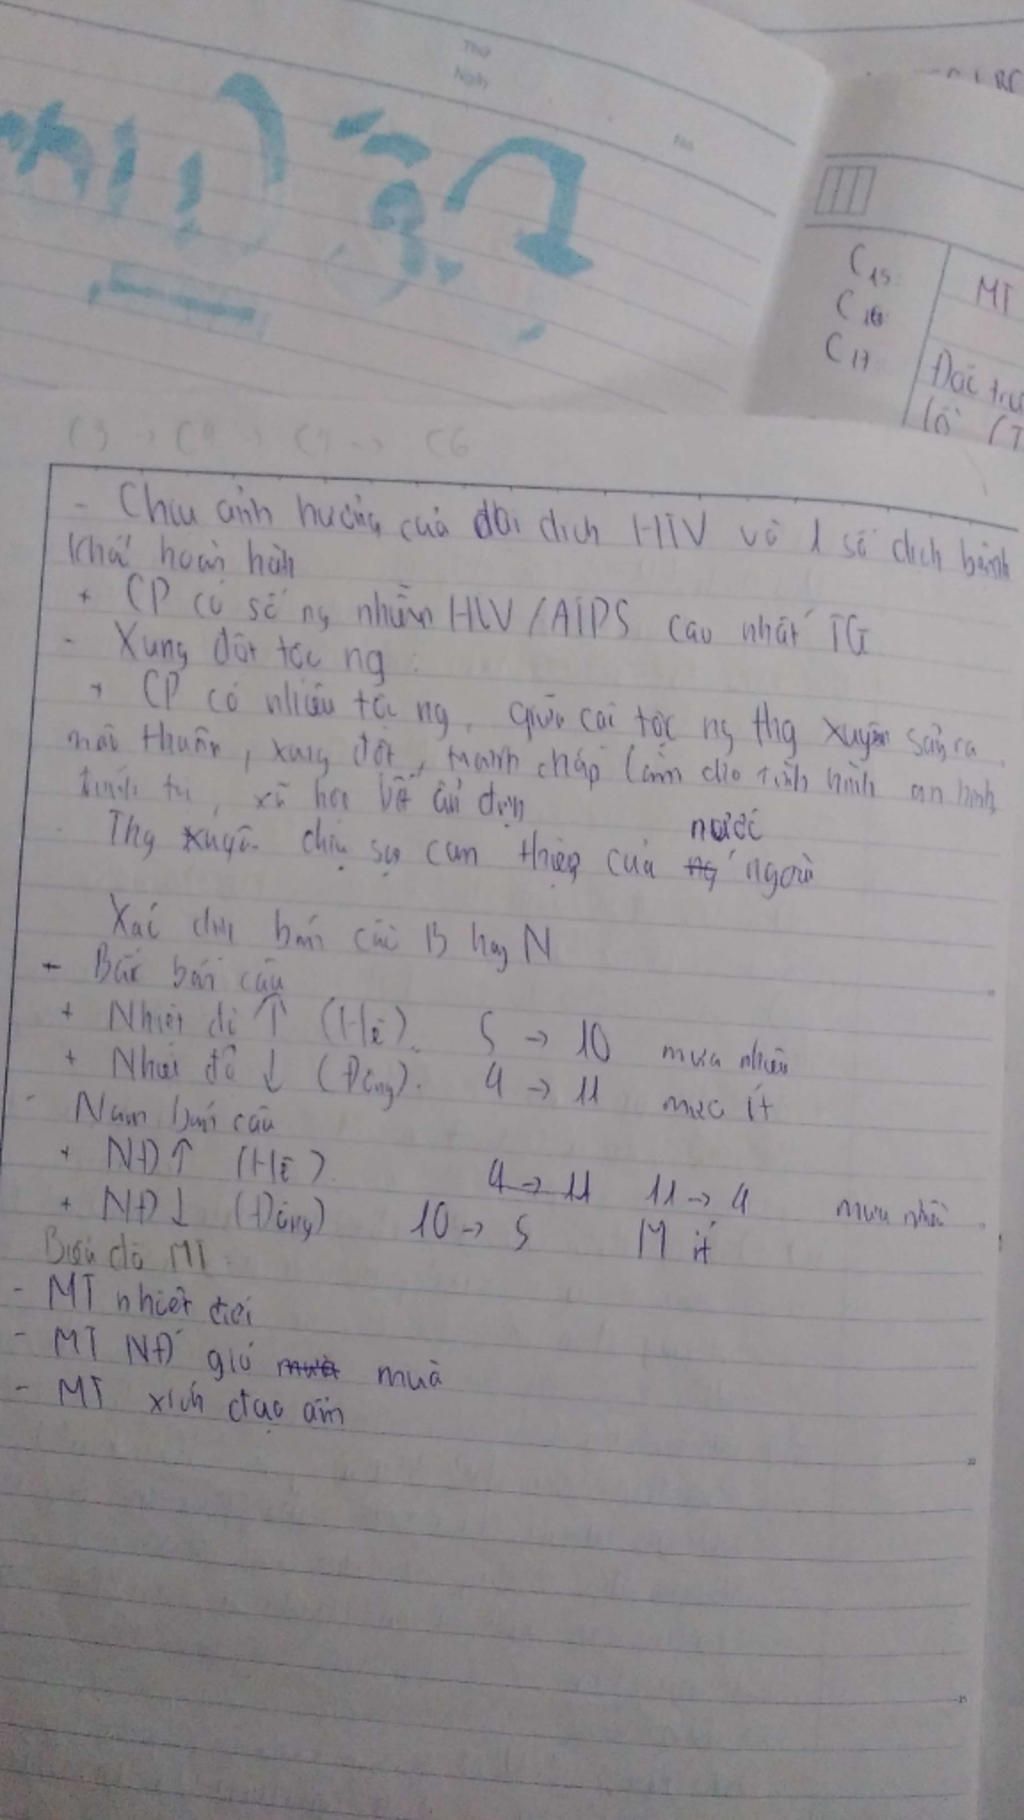 Thứ
Ngày
No.
C15
C16
C17
MT
Đặc trư
C3 → C4 → C5 → C6
- Chịu ảnh hưởng của đại dịch HIV và 1 số dịch bệnh
khác hoàn hàn
+ CP có số ng nhiễm HIV/AIDS cao nhất TG
- Xung đột tộc ng :
+ CP có nhiều tộc ng, giữa các tộc ng thg xuyên sảy ra
mâu thuẫn, xung đột, tranh chấp làm cho tình hình an ninh,
chính trị, xã hội bất ổn định
- Thg xuyên chịu sự can thiệp của nước ngoài
Xác định bán cầu B hay N
- Bắc bán cầu
+ Nhiệt độ ↑ (Hè). 5 → 10 mưa nhiều
+ Nhiệt độ ↓ (Đông). 4 → 11 mưa ít
- Nam bán cầu
+ NĐ ↑ (Hè) 4 → 11 11 → 4 mưa nhiều
+ NĐ ↓ (Đông) 10 → 5 M ít
Biểu đồ MT
- MT nhiệt đới
- MT NĐ gió mùa
- MT xích đạo ẩm
22
25